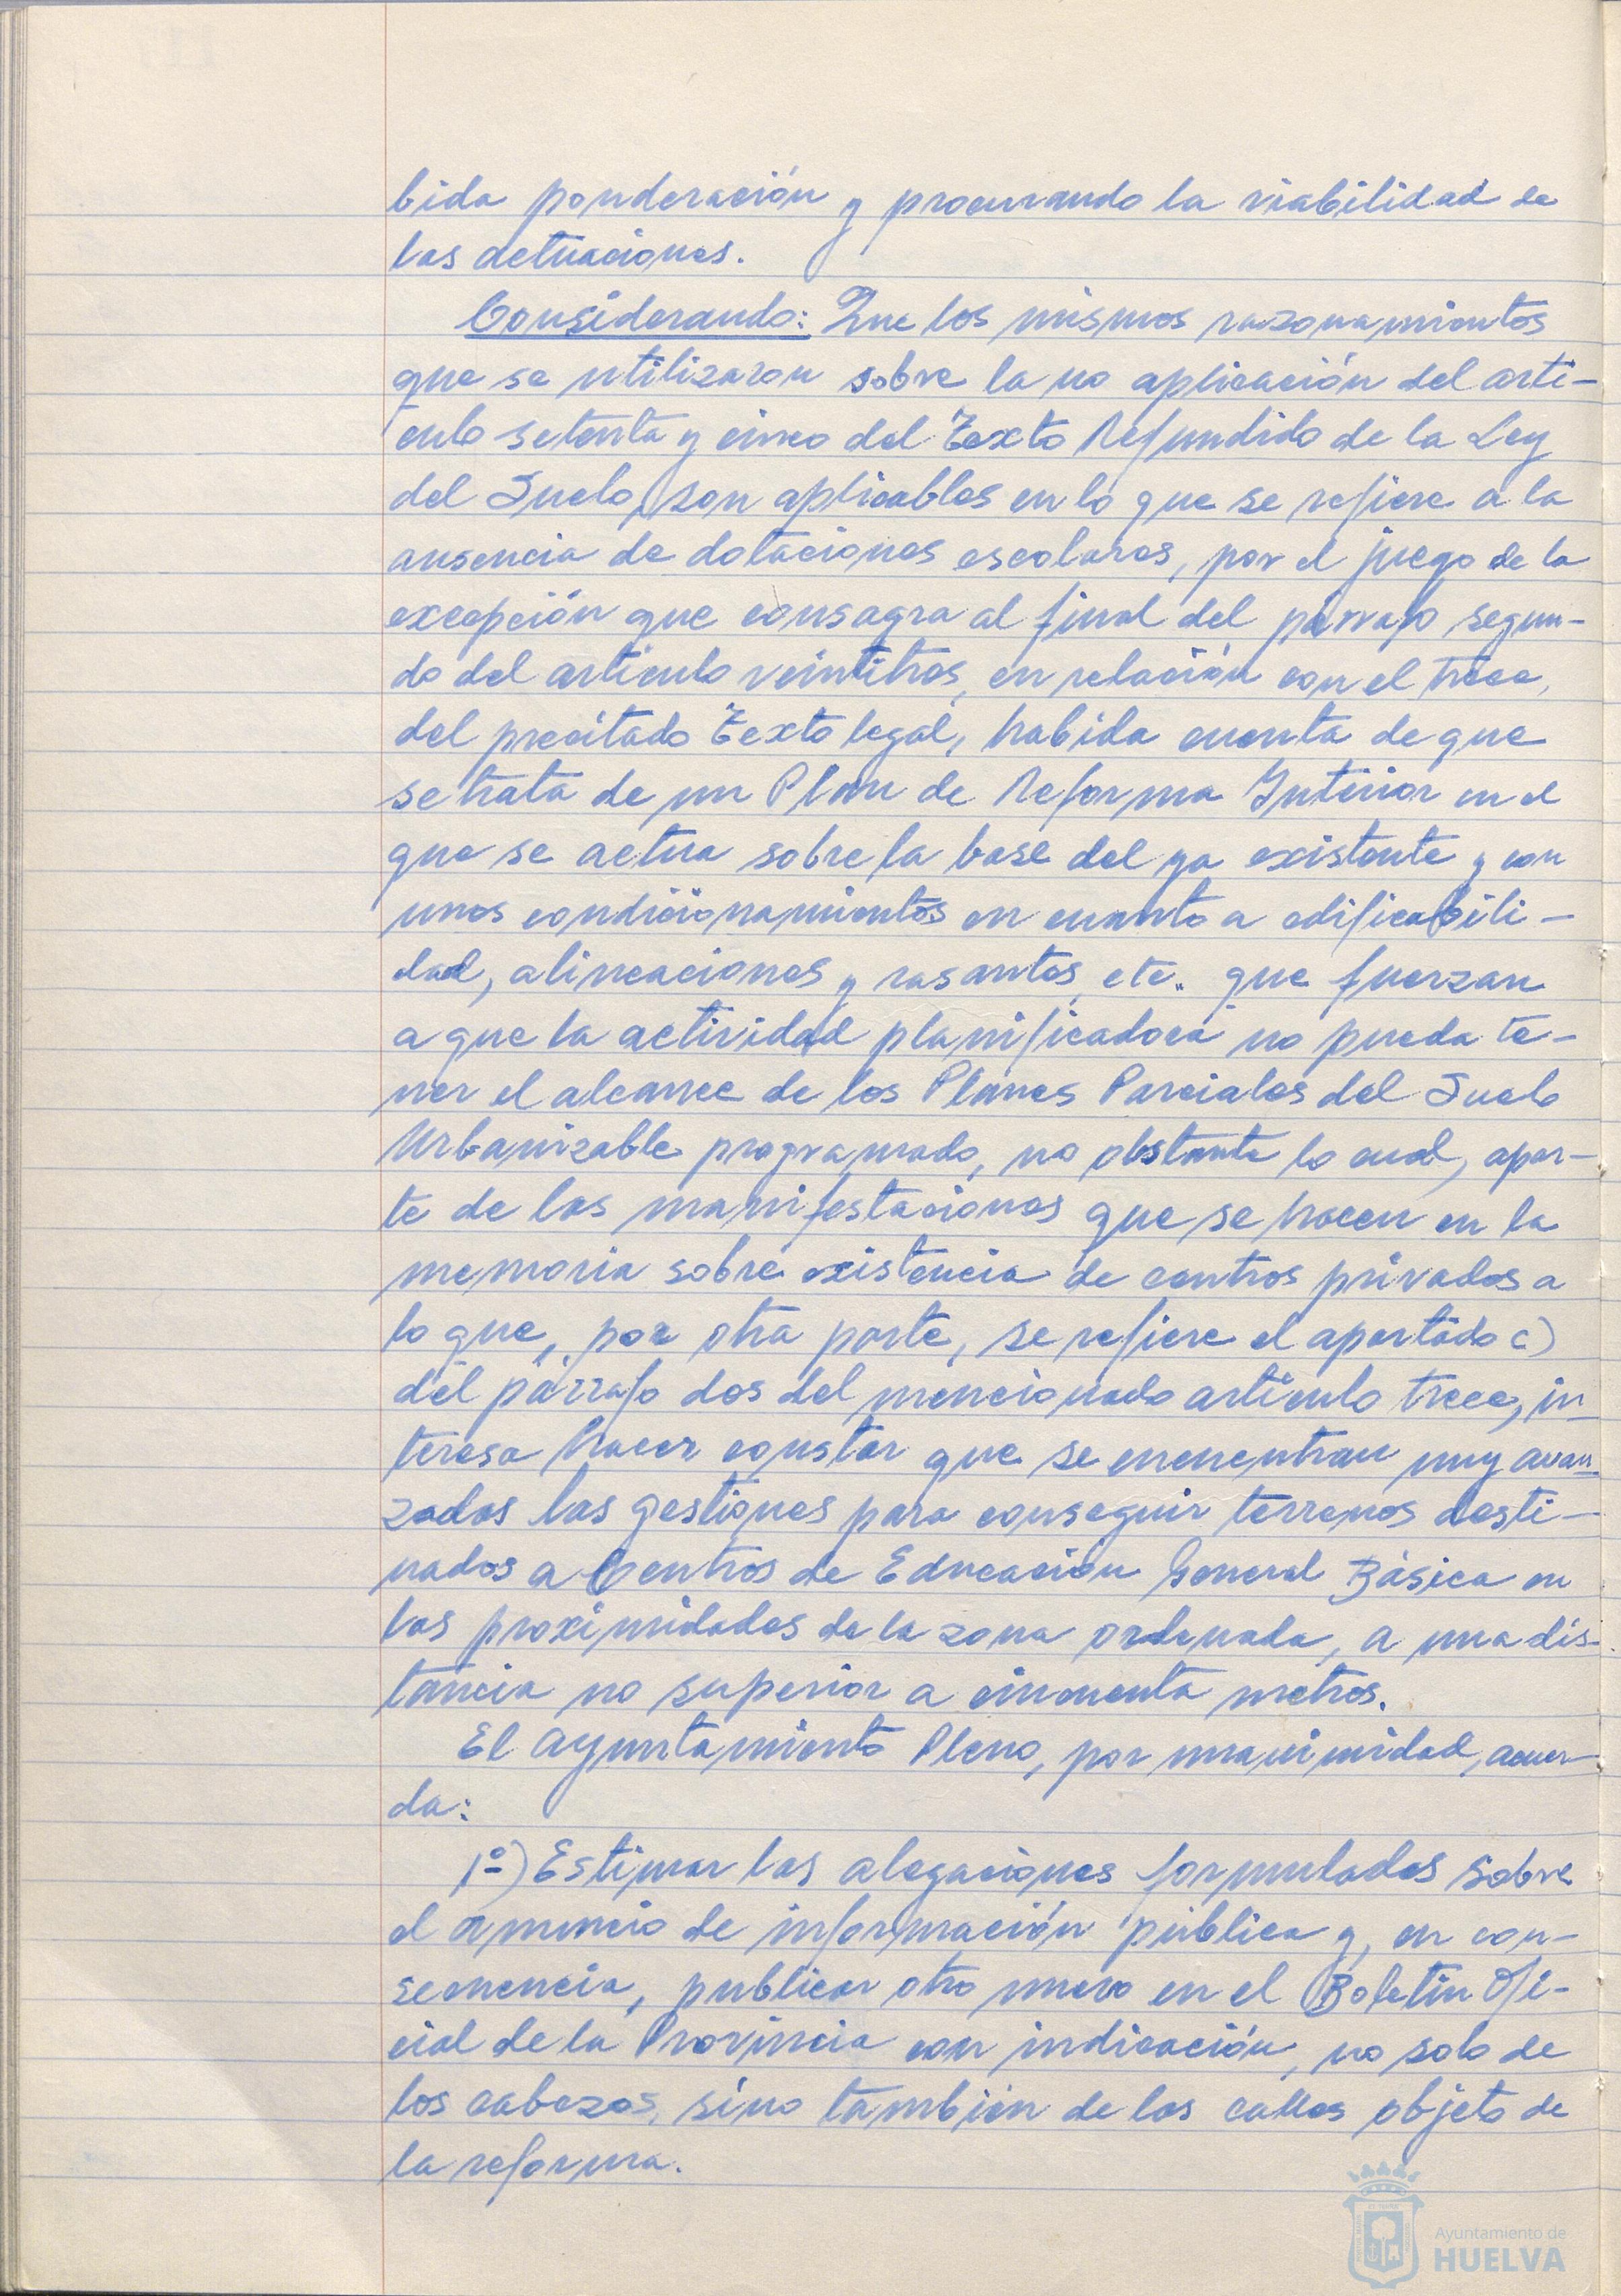 bida ponderación y procurando la viabilidad de
las actuaciones.
Considerando: Que los mismos razonamientos
que se utilizaron sobre la no aplicación del artí-
culo setenta y cinco del Texto Refundido de la Ley
del Suelo, son aplicables en lo que se refiere a la
ausencia de dotaciones escolares, por el juego de la
excepción que consagra al final del párrafo segun-
do del artículo veintitres, en relación con el trece,
del precitado Texto legal, habida cuenta de que
se trata de un Plan de Reforma Interior en el
que se actua sobre la base del ya existente y con
unos condicionamientos en cuanto a edificabili-
dad, alineaciones y rasantes, etc. que fuerzan
a que la actividad planificadora no pueda te-
ner el alcance de los Planes Parciales del Suelo
Urbanizable programado, no obstante lo cual, apar-
te de las manifestaciones que se hacen en la
memoria sobre existencia de centros privados a
lo que, por otra parte, se refiere el apartado c)
del párrafo dos del mencionado artículo trece, in-
teresa hacer constar que se encuentran muy avan-
zadas las gestiones para conseguir terrenos desti-
nados a Centros de Educación General Básica en
las proximidades de la zona ordenada, a una dis-
tancia no superior a cincuenta metros.
El Ayuntamiento Pleno, por unanimidad, acuer-
da:
1º) Estimar las alegaciones formuladas sobre
el anuncio de información pública y, en con-
secuencia, publicar otro nuevo en el Boletín Ofi-
cial de la Provincia con indicación, no solo de
los cabezos, sino también de las calles objeto de
la reforma.
Ayuntamiento de
HUELVA